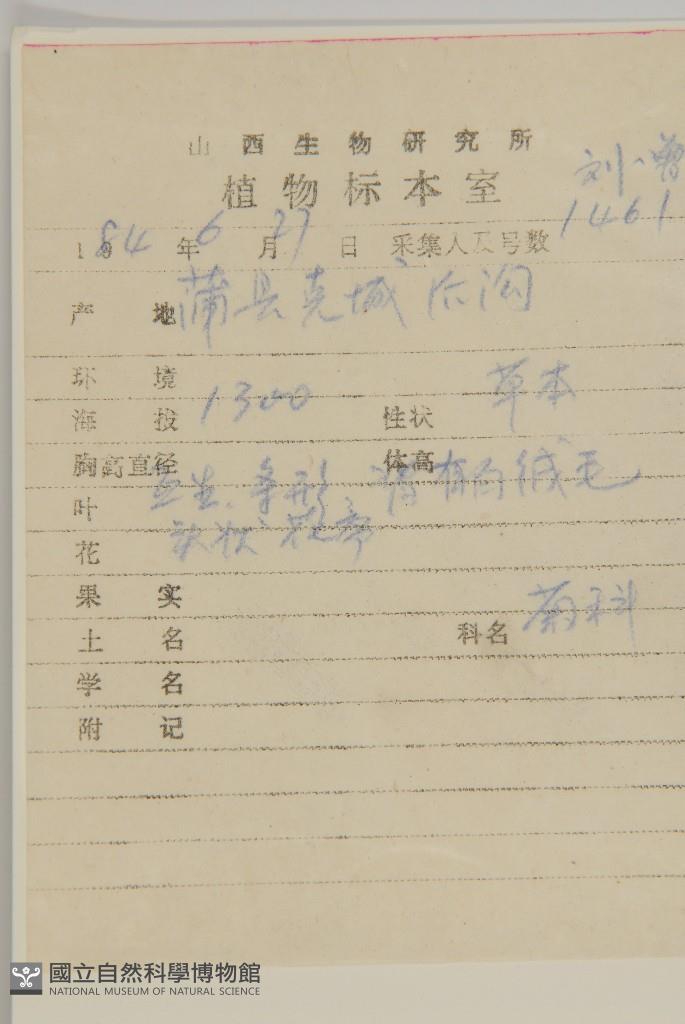 山西生物研究所
植物标本室
刘小曾
1984年6月27日 采集人及号数 1461
产地 蒲县克城后沟
环境
海拔 1300 性状 草本
胸高直径 体高
叶 互生、条形 背有白绒毛
花 头状花序
果实
土名 科名 菊科
学名
附记
國立自然科學博物館
NATIONAL MUSEUM OF NATURAL SCIENCE